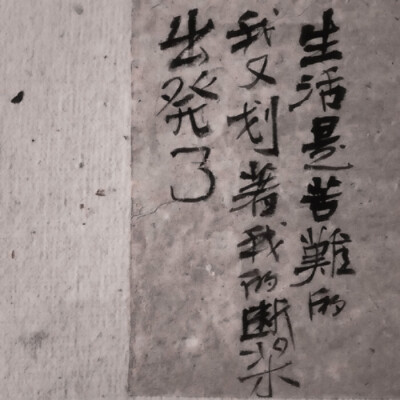 生活是苦難的
我又划著我的断桨
出発了